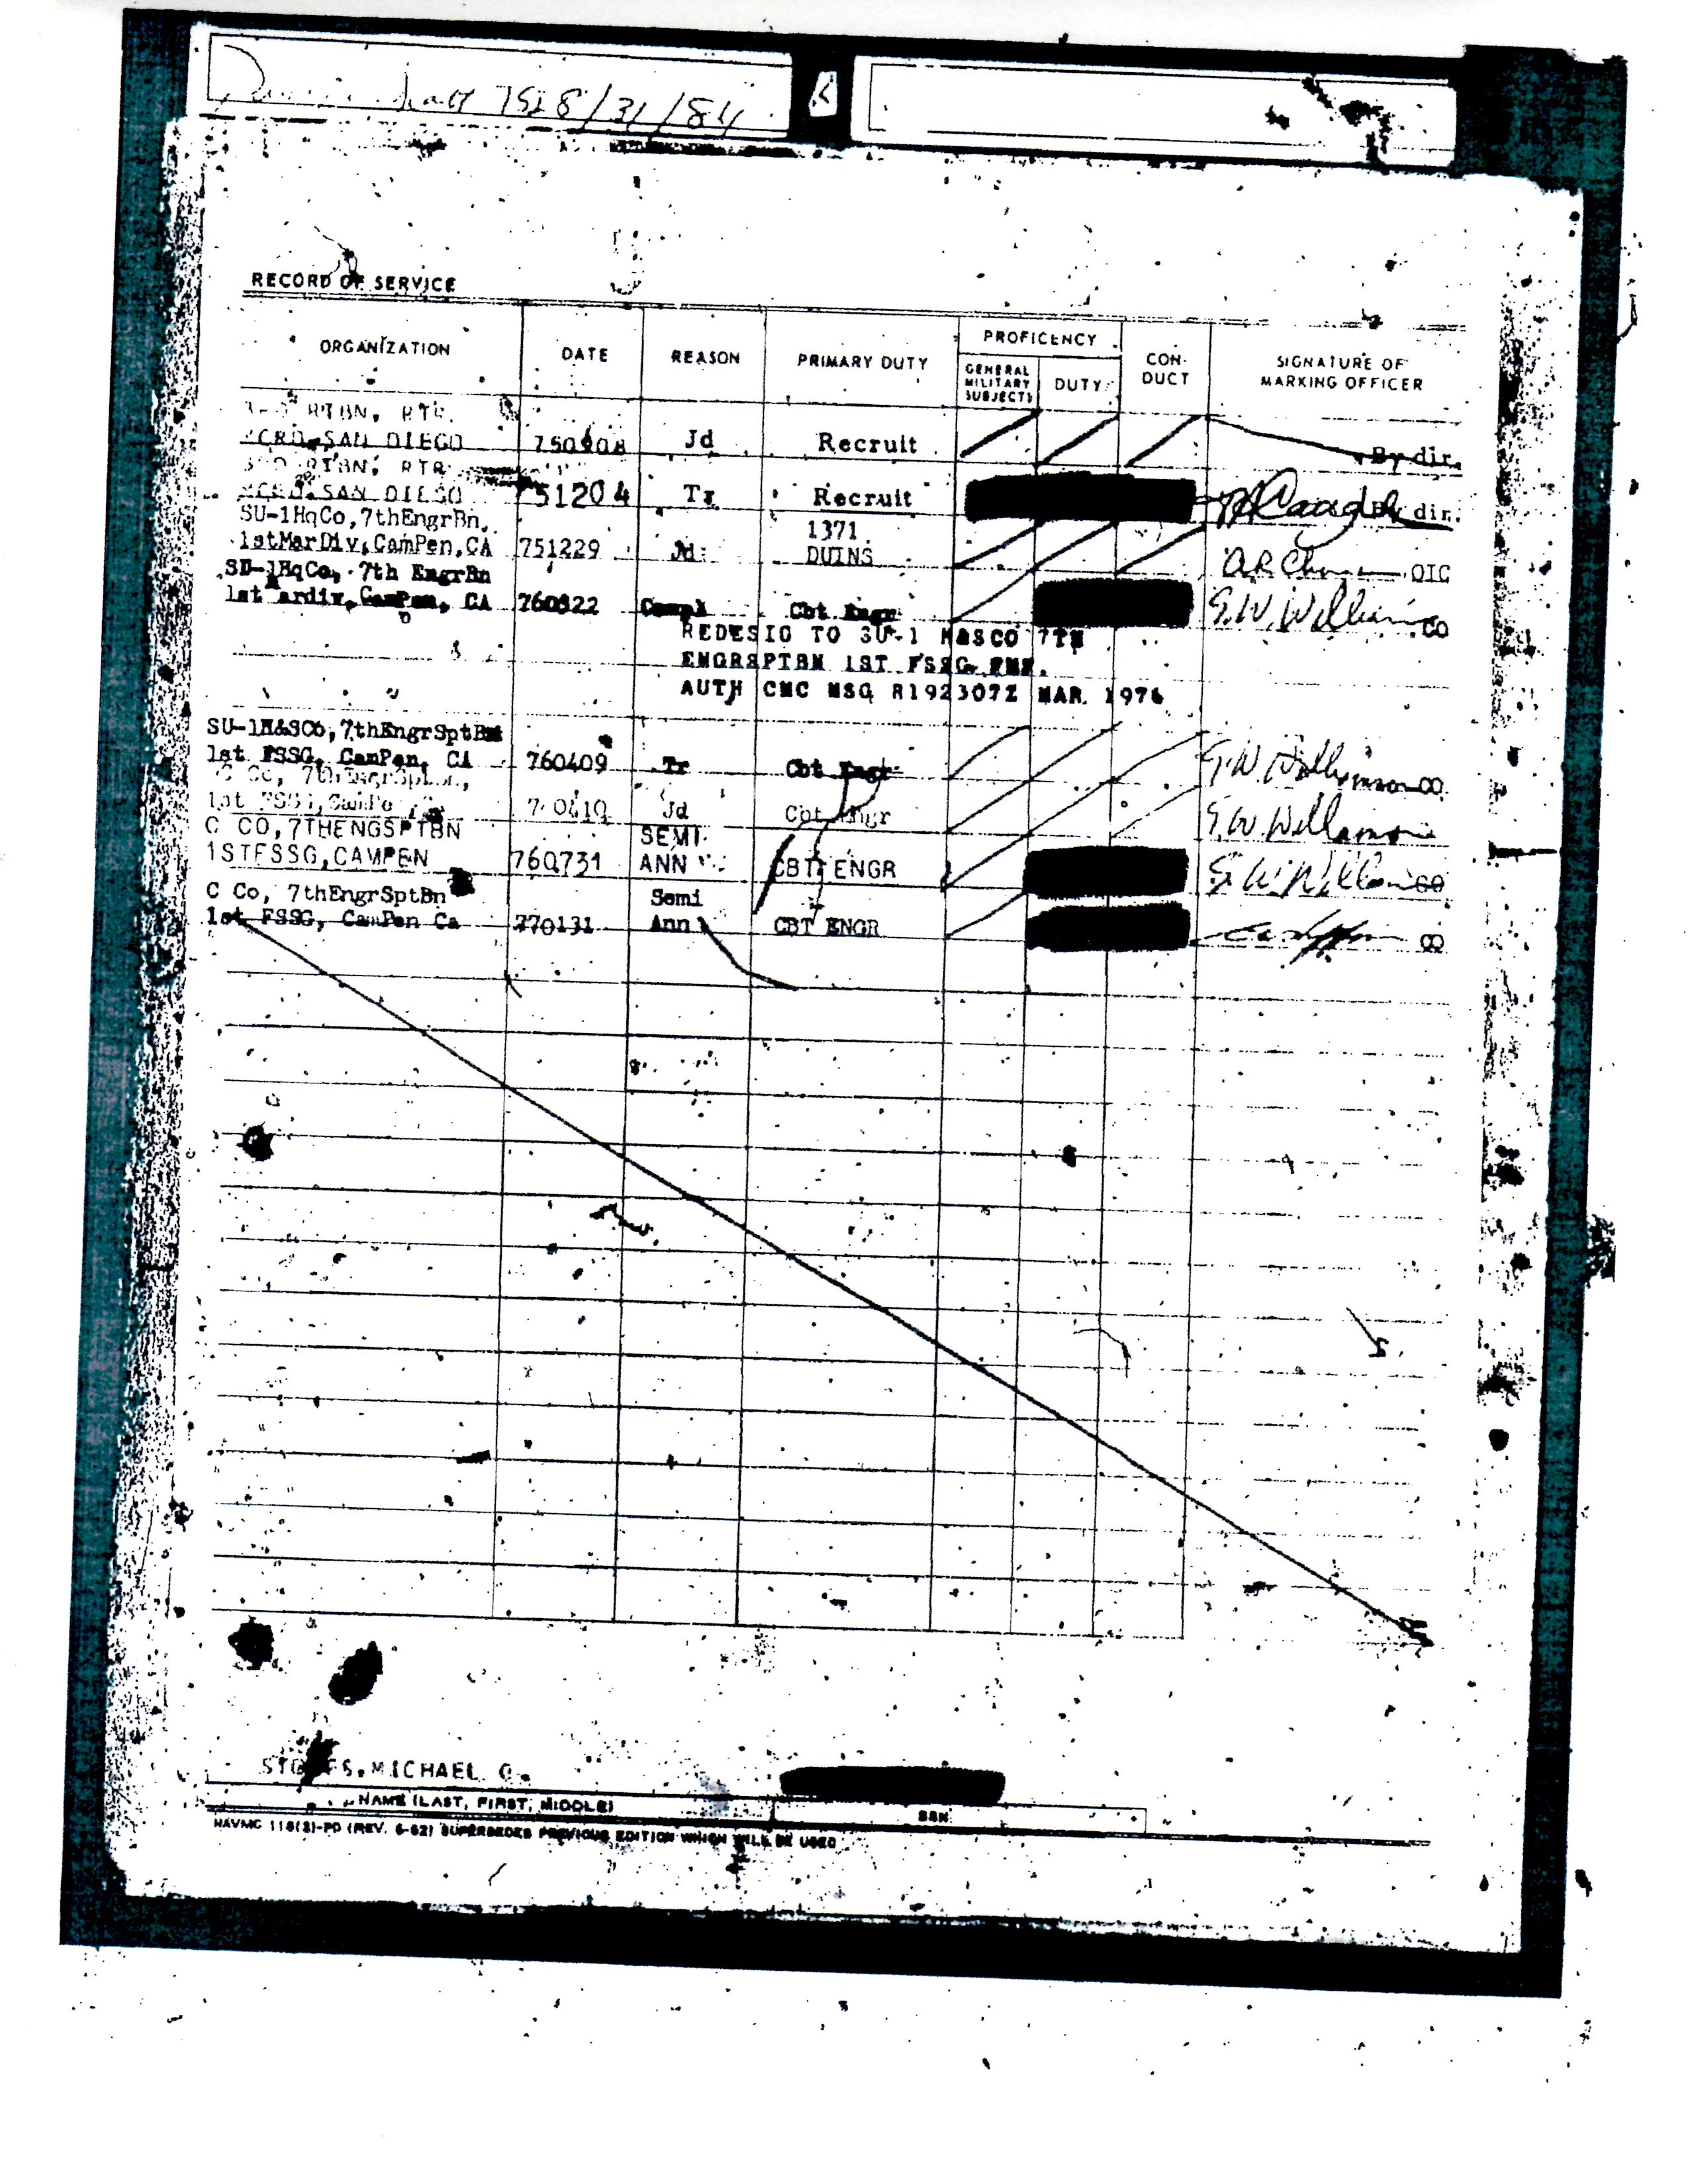 8/31/84
RECORD OF SERVICE
ORGANIZATION DATE REASON PRIMARY DUTY PROFICIENCY CON-DUCT SIGNATURE OF MARKING OFFICER
GENERAL MILITARY SUBJECTS DUTY
RTBN, RTR
MCRD, SAN DIEGO 750908 Jd Recruit By dir.
RTBN, RTR
MCRD, SAN DIEGO 751204 Tr Recruit By dir.
SU-1HqCo, 7thEngrBn, 1371
1stMarDiv, CamPen, CA 751229 Jd DUINS OIC
SU-1HqCo, 7th EngrBn
1st ardiv, CamPen, CA 760322 Compl Cbt Engr CO
REDESIG TO SU-1 H&SCO 7TH
ENGRSPTBN 1ST FSSG FMF.
AUTH CMC MSG R192307Z MAR. 1976
SU-1H&SCo, 7thEngrSptBn
1st FSSG, CamPen, CA 760409 Tr Cbt Engr CO
C Co, 7thEngrSptBn,
1st FSSG, Jd Cbt Engr
C CO, 7THENGSPTBN SEMI
1STFSSG, CAMPEN 760731 ANN CBT ENGR CO
C Co, 7thEngrSptBn Semi
1st FSSG, CamPen Ca 770131 Ann CBT ENGR CO
MICHAEL
NAME (LAST, FIRST, MIDDLE) SSN
NAVMC 118(3)-PD (REV. 6-62) SUPERSEDES PREVIOUS EDITION WHICH WILL BE USED